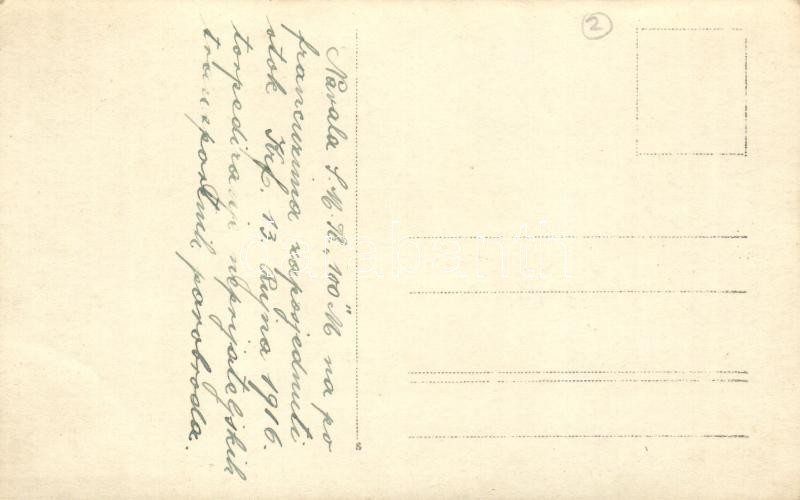 Navala S. M. B. „100 M" na po
francuzima zaposjednuti
otok Krf. 13. Rujna 1916.
torpediranje neprijateljskih
transportnih parobroda.
2